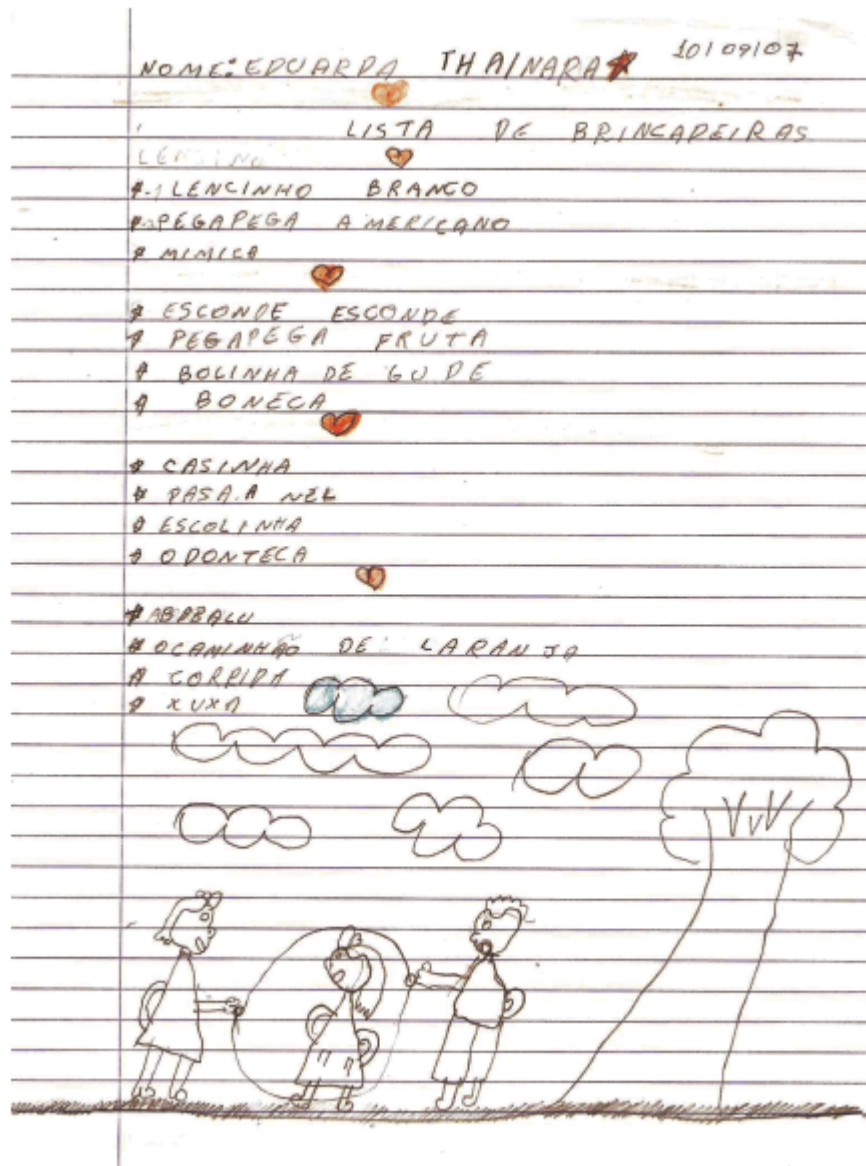 NOME: EDUARDA THAINARA 10/09/07
LISTA DE BRINCADEIRAS
LENSINO
* LENCINHO BRANCO
* PEGAPEGA AMERICANO
* MIMICA
* ESCONDE ESCONDE
* PEGAPEGA FRUTA
* BOLINHA DE GUDE
* BONECA
* CASINHA
* PASA.A NEL
* ESCOLINHA
* ODONTECA
* ABABALU
* OCAMINHÃO DE LARANJA
* CORRIDA
* XUXA